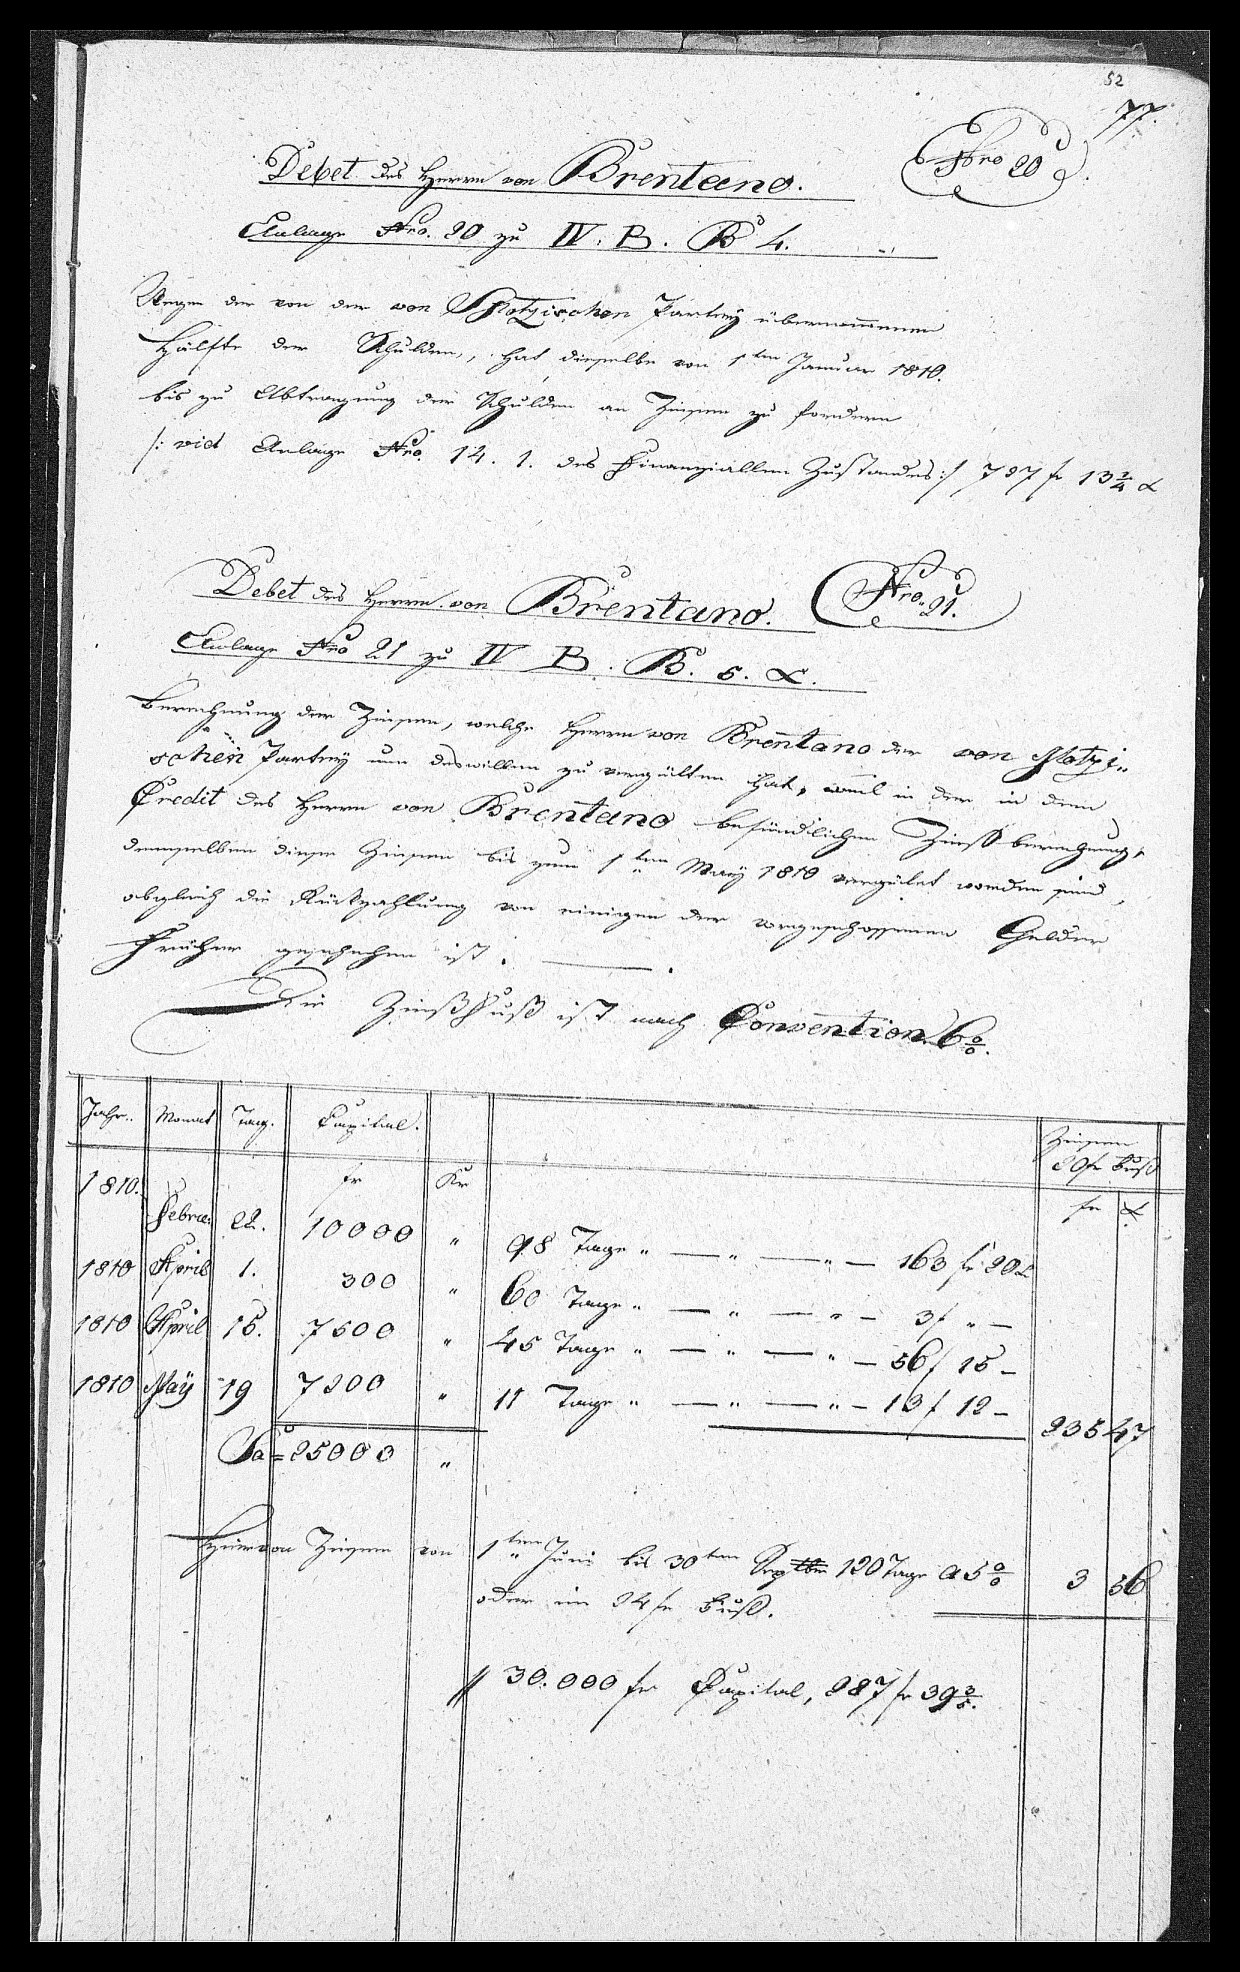 52
77.
Debet des Herrn von Brentano.
Nro 20
Anlage Nro. 20 zu IV. B. B 4.
Wegen der von der von Motzischen Partey übernommenen
Hälfte der Schulden, hat dieselbe von 1ten Januar 1810.
bis zu Abtragung der Schulden an Zinsen zu fordern
/: vid Anlage Nro. 14. 1. des Finanziellen Zustandes :/ 727 fr 13 3/4 x
Debet des Herrn von Brentano.
Nro. 21.
Anlage Nro 21 zu IV B. B. 5. α.
Berechnung der Zinsen, welche Herrn von Brentano der von Motzi-
schen Partey um deswillen zu vergüten hat, weil in der in dem
Credit des Herrn von Brentano befindlichen Zinß berechnung,
demselben diese Zinsen bis zum 1ten May 1810 vergütet worden sind,
obgleich die Rückzahlung von einigen der vorgeschossenen Gelder
früher geschehen ist.
Die Zinßfuß ist nach Convention 6 0/0.
Jahr. Monat Tag. Capital. Zinsen
20 fr Fuß
1810. fr Kr fr x
Febru: 22. 10000 " 98 Tage " — " — " — 163 fr 20 x
1810 April 1. 300 " 60 Tage " — " — " — 3 f " —
1810 April 15. 7500 " 45 Tage " — " — " — 56 f 15 —
1810 May 19 7200 " 11 Tage " — " — " — 13 f 12 — 235 47
Sa = 25000 "
Hiervon Zinsen von 1ten Juni bis 30ten Septbr 120 Tage a 5 0/0 3 56
oder im 24 fr Fuß.
30.000 fr Capital, 287 fr 39 3/5.